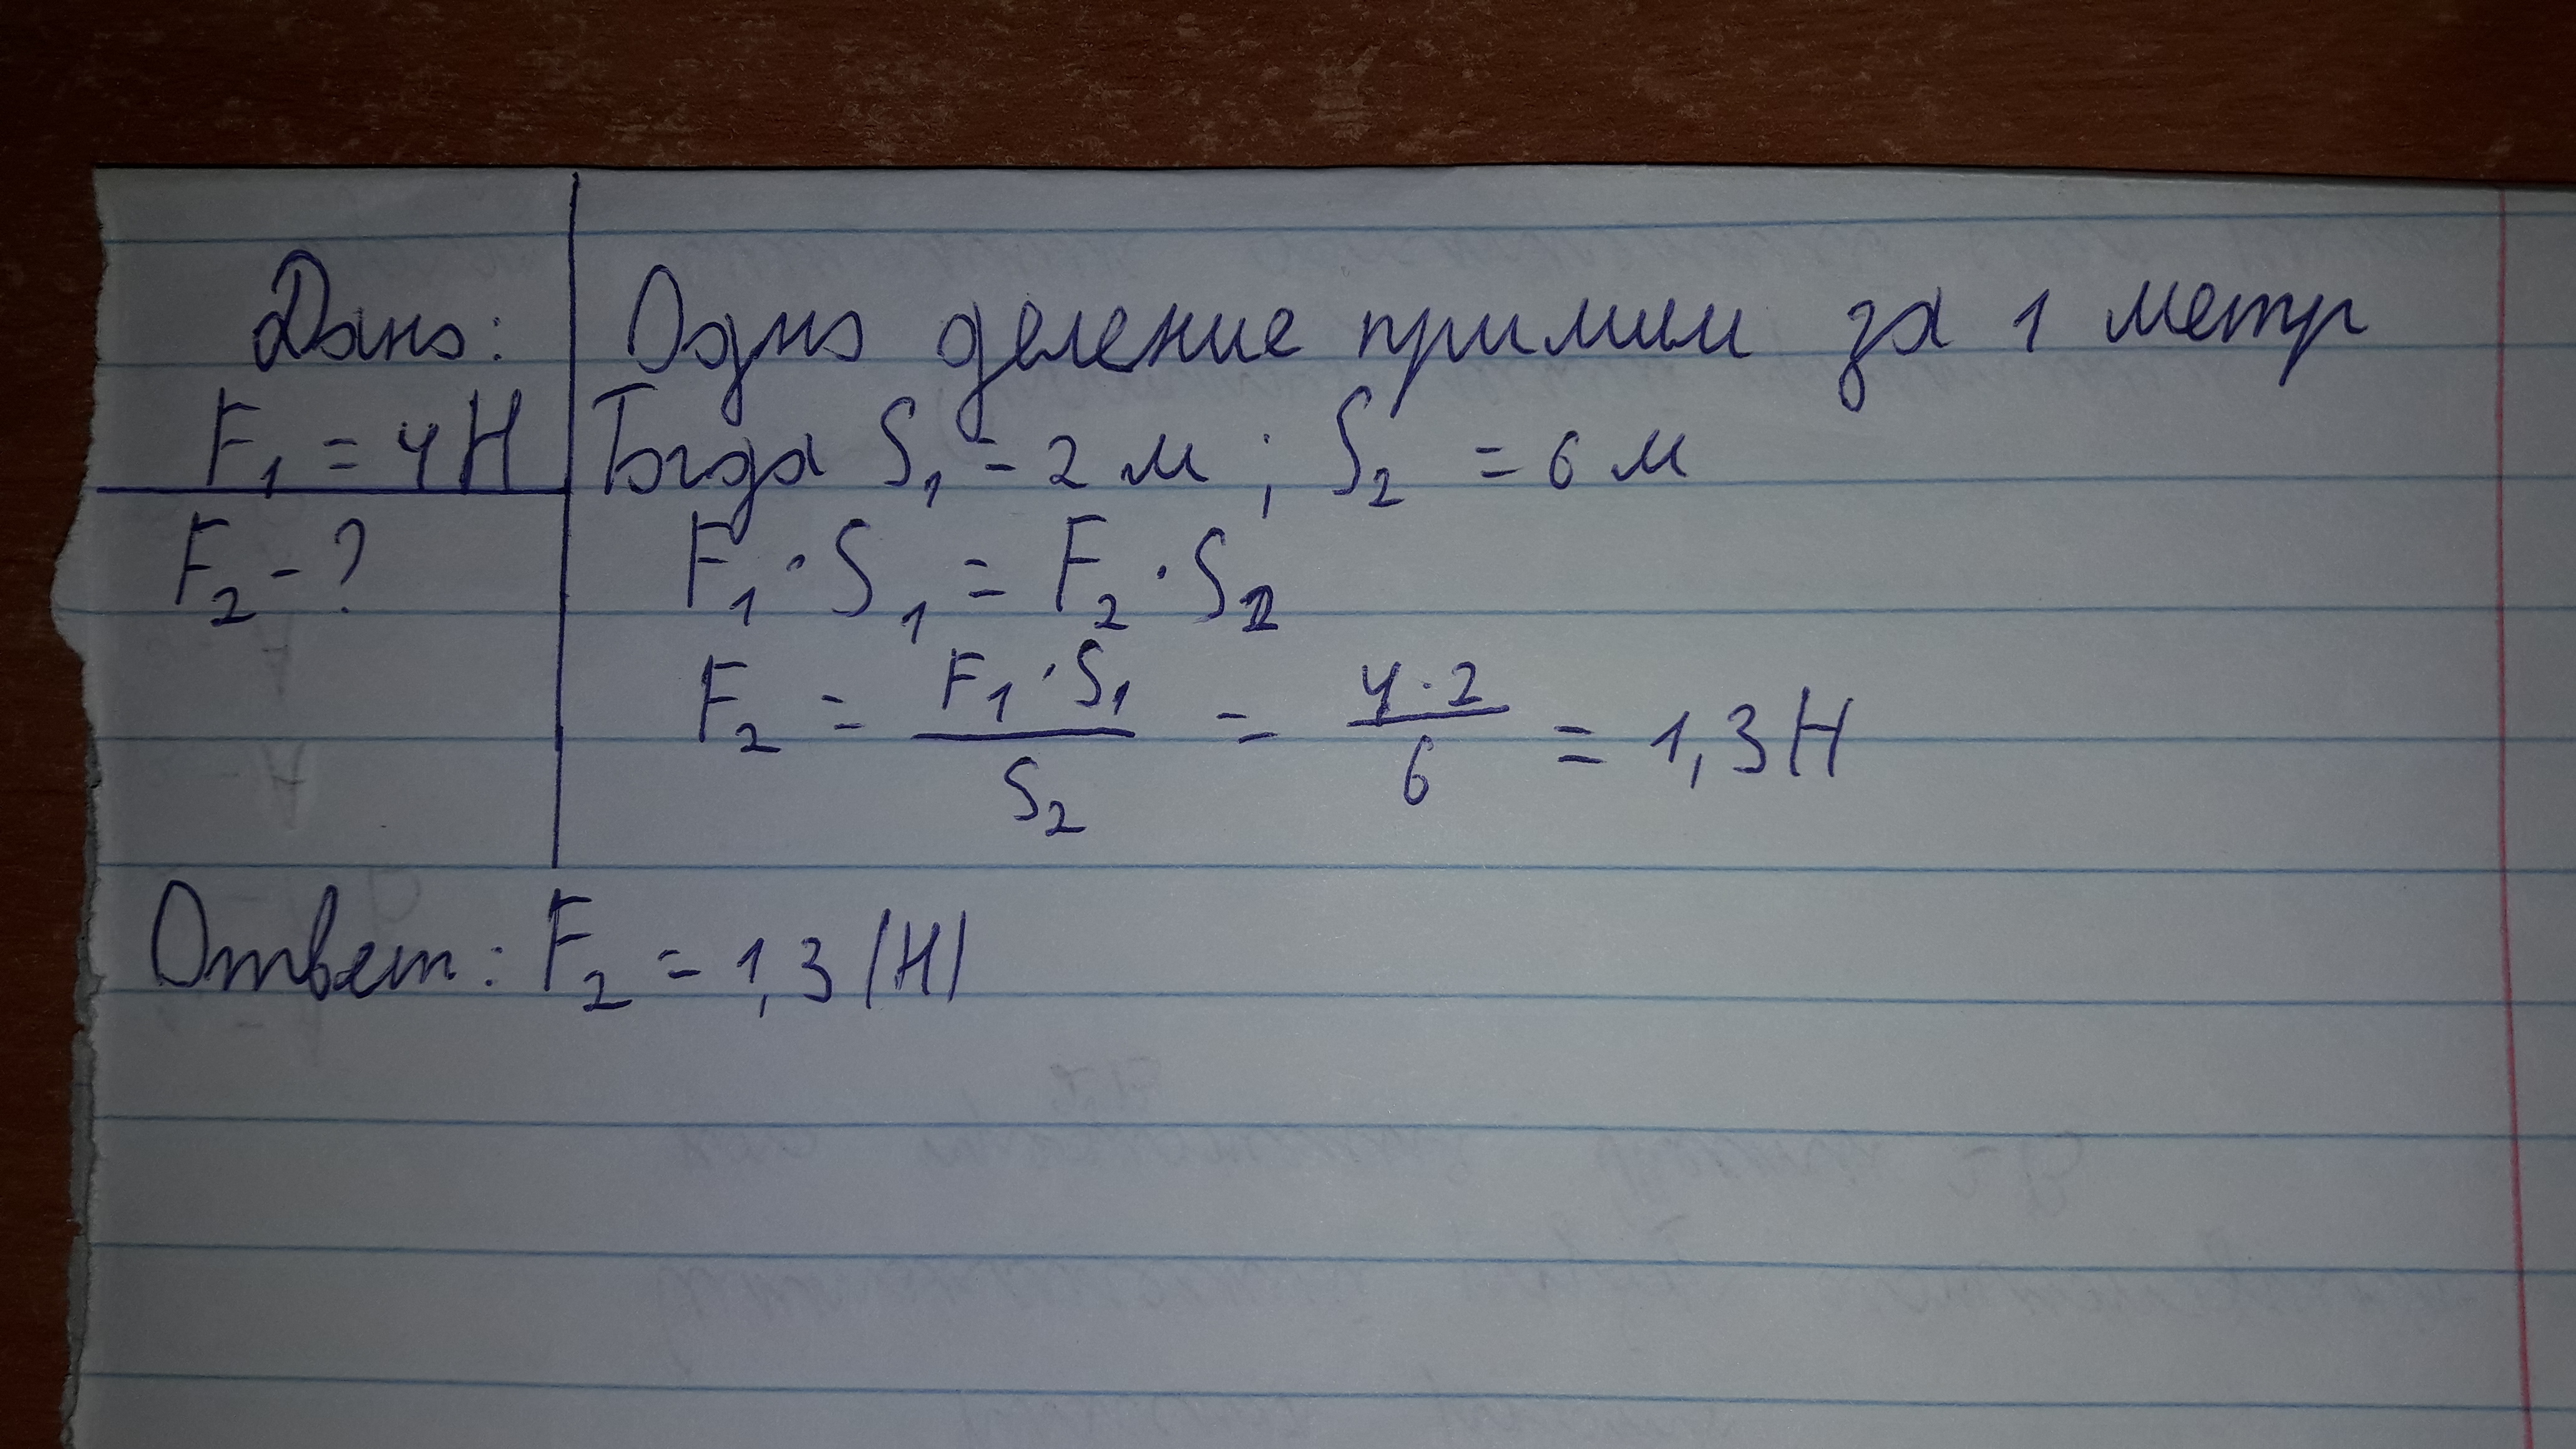 Дано:
F₁ = 4Н
F₂ - ?
Одно деление примем за 1 метр
Тогда S₁ = 2 м ; S₂ = 6 м
F₁ · S₁ = F₂ · S₂
F₂ = F₁ · S₁ / S₂ = 4 · 2 / 6 = 1,3 Н
Ответ: F₂ = 1,3 (Н)